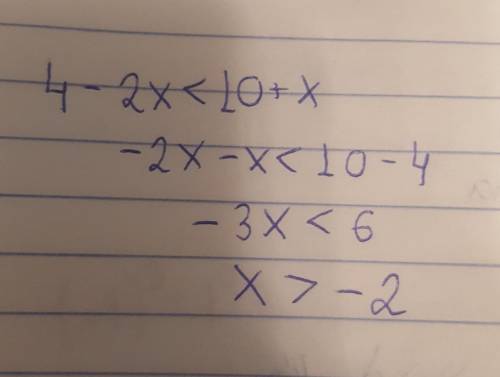 4 - 2x < 10 + x
-2x - x < 10 - 4
-3x < 6
x > -2